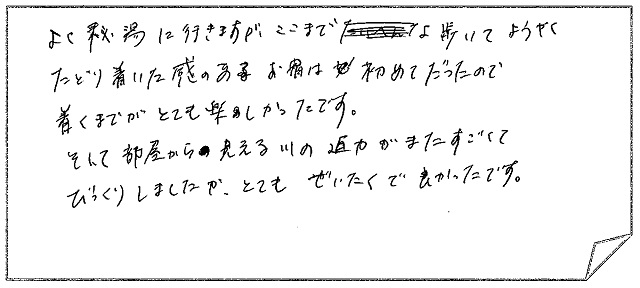 よく秘湯に行きますが、ここまで な歩いてようやく
たどり着いた感のある お宿は 初めてだったので
着くまでがとても楽しかったです。
そして部屋から見える川の迫力がまたすごくて
びっくりしましたが、とても ぜいたくで良かったです。